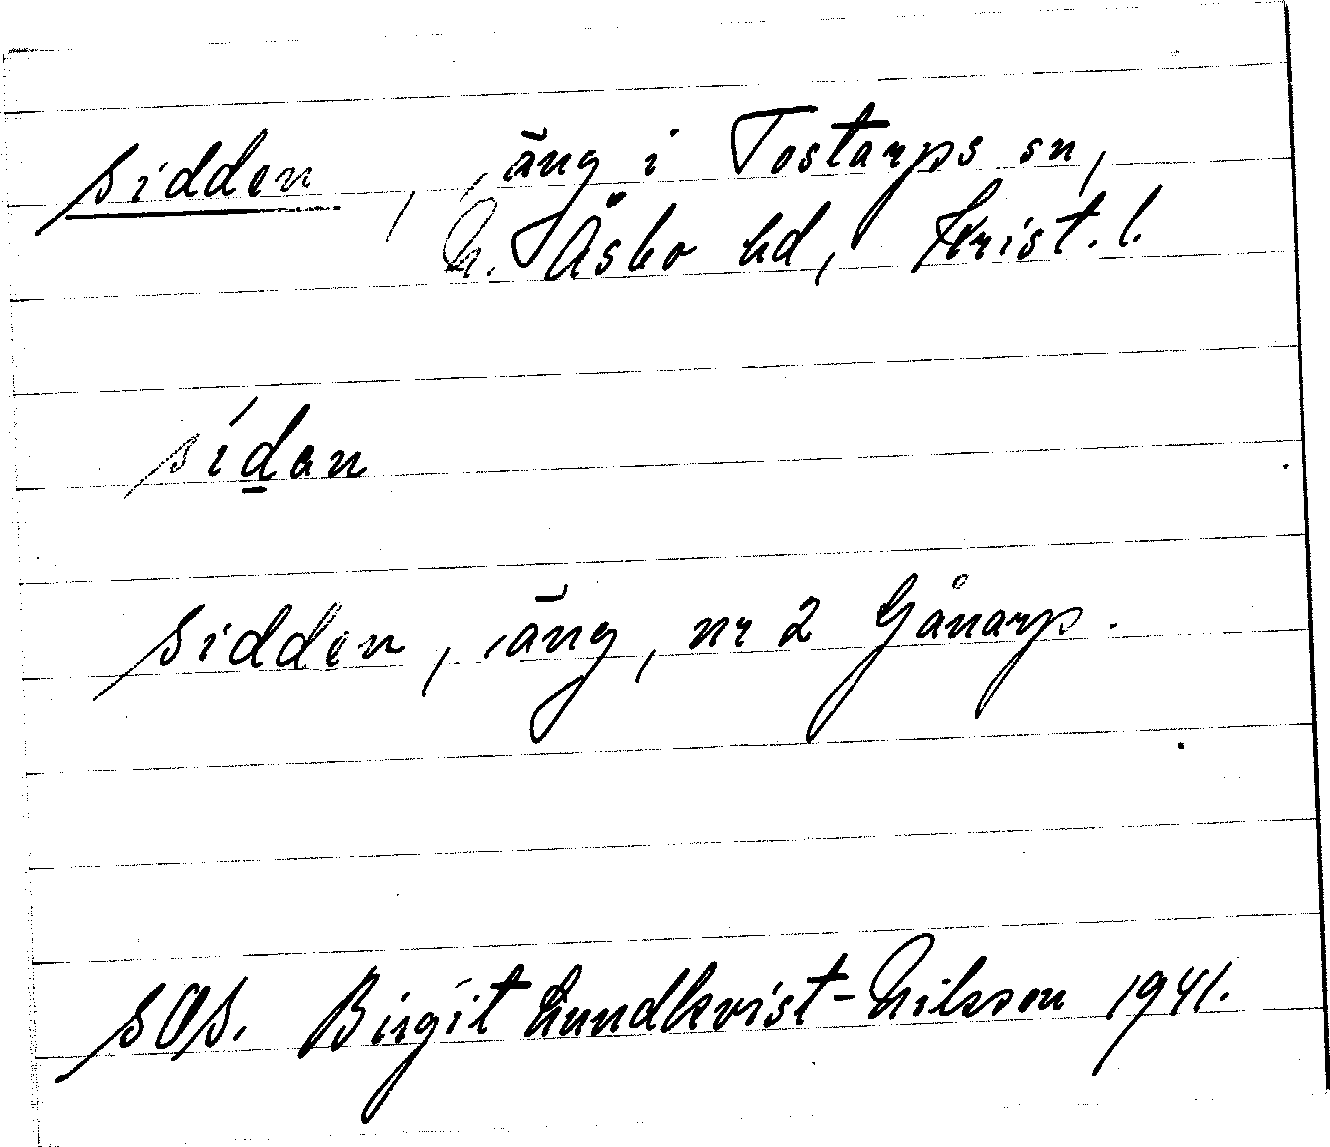 Sidden, äng i Tostarps sn,
N. Åsbo hd, Krist. l.
sídan
Sidden, äng, nr 2 Gånarp.
SOS. Birgit Lundkvist-Nilsson 1941.